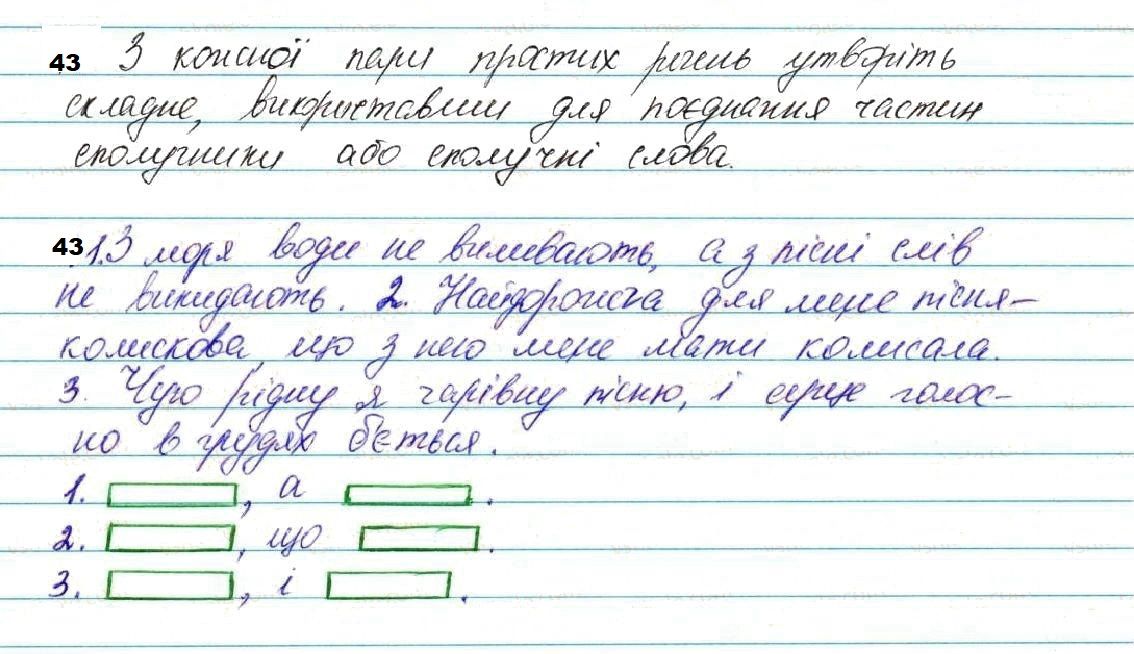 43 З кожної пари простих речень утворіть
складне, використавши для поєднання частин
сполучники або сполучні слова.
43 1. З моря води не виливають, а з пісні слів
не викидають. 2. Найдорожча для мене пісня-
колискова, що з нею мене мати колисала.
3. Чую рідну я чарівну пісню, і серце голос-
но в грудях б'ється.
1. , а .
2. , що .
3. , і .